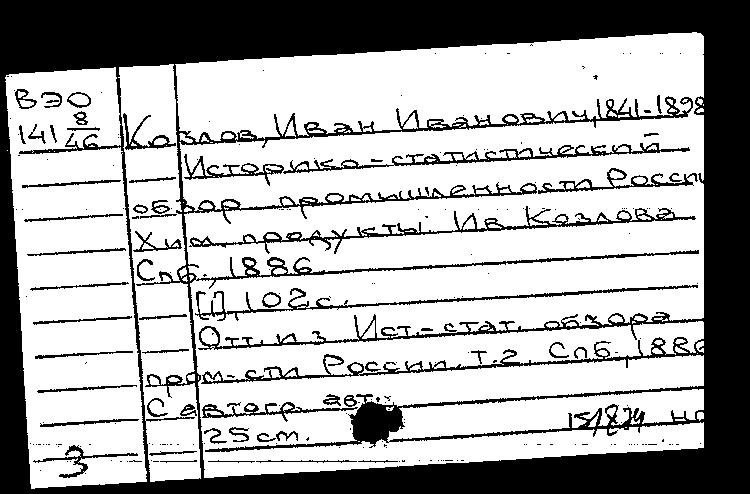 ВЭО
141 8/46 Козлов, Иван Иванович, 1841-1898
Историко-статистический
обзор промышленности Росси
Хим. продукты Ив Козлова
Спб., 1886
[1], 102 с.
Отт. из Ист.-стат. обзора
пром-сти России. Т.2. Спб., 1886
С автогр. авт.
25 см.
нп
3